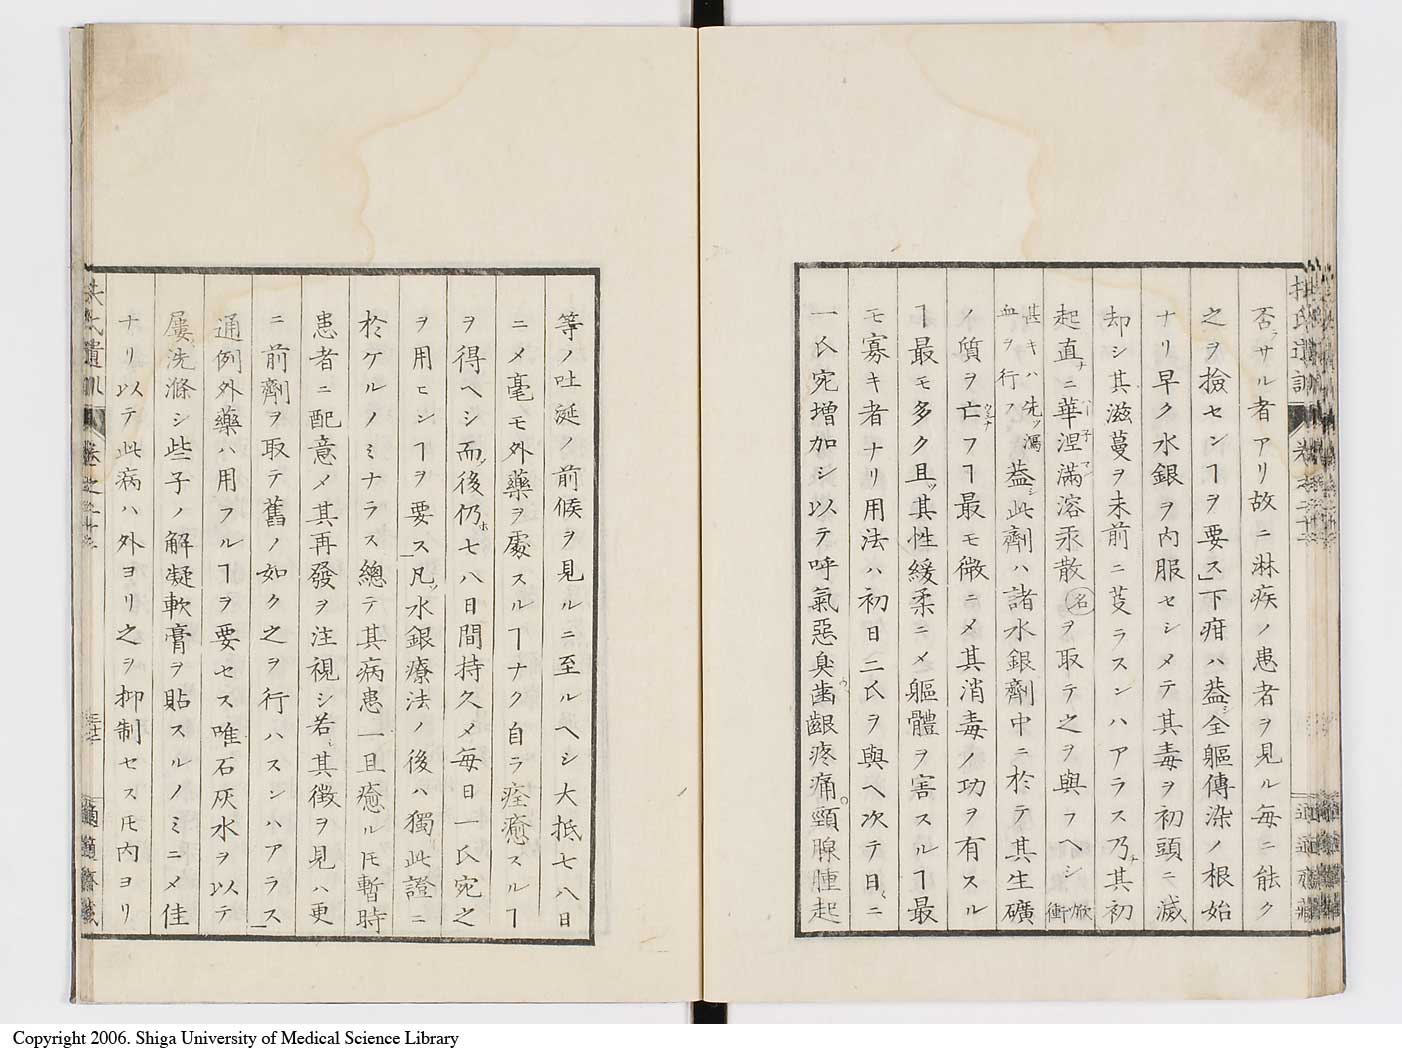 扶氏遺訓
卷之二十二
適適齋藏
否ラサル者アリ故ニ淋疾ノ患者ヲ見ル毎ニ能ク
之ヲ撿センヿヲ要ス」下疳ハ葢シ全軀傳染ノ根始
ナリ早ク水銀ヲ内服セシメテ其毒ヲ初頭ニ滅
却シ其滋蔓ヲ未前ニ芟ラスンハアラス乃チ其初
起直チニ華涅滿溶汞散名ヲ取テ之ヲ與フヘシ焮衝
甚キハ先ツ瀉血ヲ行フ葢シ此劑ハ諸水銀劑中ニ於テ其生礦
ノ質ヲ亡フヿ最モ微ニメ其消毒ノ功ヲ有スル
ヿ最モ多ク且ツ其性緩柔ニメ軀體ヲ害スルヿ最
モ寡キ者ナリ用法ハ初日二氏ヲ與ヘ次テ日ニ
一氏宛増加シ以テ呼氣惡臭齒齦疼痛頸腺腫起
等ノ吐涎ノ前候ヲ見ルニ至ルヘシ大抵七八日
ニメ毫モ外藥ヲ處スルヿナク自ラ痊癒スルヿ
ヲ得ヘシ而後仍ホ七八日間持久メ毎日一氏宛之
ヲ用ヒンヿヲ要ス」凡ソ水銀療法ノ後ハ獨此證ニ
於ケルノミナラス總テ其病患一旦癒ル𪜈暫時
患者ニ配意メ其再發ヲ注視シ若シ其徴ヲ見ハ更
ニ前劑ヲ取テ舊ノ如ク之ヲ行ハスンハアラス」
通例外藥ハ用フルヿヲ要セス唯石灰水ヲ以テ
屢洗滌シ些子ノ解凝軟膏ヲ貼スルノミニメ佳
ナリ以テ此病ハ外ヨリ之ヲ抑制セス𪜈内ヨリ
扶氏遺訓
卷之二十二
適適齋藏
Copyright 2006. Shiga University of Medical Science Library